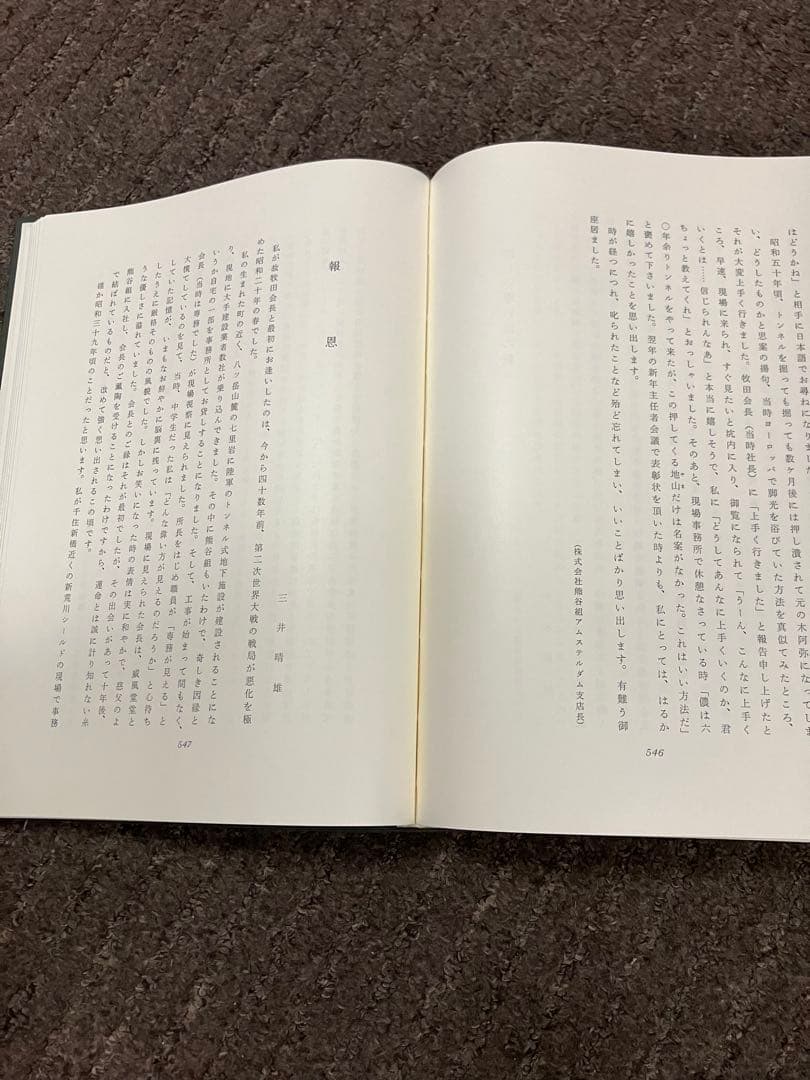 はどうかね」と相手に日本語でお尋ねになりました
昭和五十年頃、トンネルを掘っても掘っても数ヶ月後には押し潰されて元の木阿弥になってしま
い、どうしたものかと思案の揚句、当時ヨーロッパで脚光を浴びていた方法を真似てみたところ、
それが大変上手く行きました。牧田会長(当時社長)に「上手く行きました」と報告申し上げたと
ころ、早速、現場に来られ、すぐ見たいと坑内に入り、御覧になられて「うーん、こんなに上手く
いくとは……信じられんなあ」と本当に嬉しそうで、私に「どうしてあんなに上手くいくのか、君
ちょっと教えてくれ」とおっしゃいました。そのあと、現場事務所で休憩なさっている時「儂は六
〇年余りトンネルをやって来たが、この押してくる地山だけは名案がなかった。これはいい方法だ」
と褒めて下さいました。翌年の新年主任者会議で表彰状を頂いた時よりも、私にとっては、はるか
に嬉しかったことを思い出します。
時が経つにつれ、叱られたことなど殆ど忘れてしまい、いいことばかり思い出します。有難う御
座居ました。
(株式会社熊谷組アムステルダム支店長)
546
報恩
三井晴雄
私が故牧田会長と最初にお逢いしたのは、今から四十数年前、第二次世界大戦の戦局が悪化を極
めた昭和二十年の春でした。
私の生まれた町の近く、八ヶ岳山麓の七里岩に陸軍のトンネル式地下施設が建設されることにな
り、現地に大手建設業者数社が乗り込んできました。その中に熊谷組もいたわけで、奇しき因縁と
いうか自宅の一部を事務所としてお貸しすることになりました。そして、工事が始まって間もなく、
会長(当時は専務でした)が現場視察に見えられました。所長をはじめ職員が「専務が見える」と
大撲しているのを見て、当時、中学生だった私は「どんな偉い方が見えるのだろうか」と心待ち
していた記憶が、いまもなお鮮やかに脳裏に残っています。現場に見えられた会長は、威風堂堂と
したうえに厳格そのものの風貌でした。しかしお笑いになった時の表情は実に和やかで、慈父のよ
うな優しさに溢れていました。会長とのご縁はそれが最初でしたが、その出会いがあって十年後、
熊谷組に入社し、会長のご薫陶を受けることになったわけですから、運命とは誠に計り知れない糸
で結ばれているものだと、改めて強く思い出されるこの頃です。
確か昭和三十九年頃のことだったと思います。私が千住新橋近くの新荒川シールドの現場で事務
547